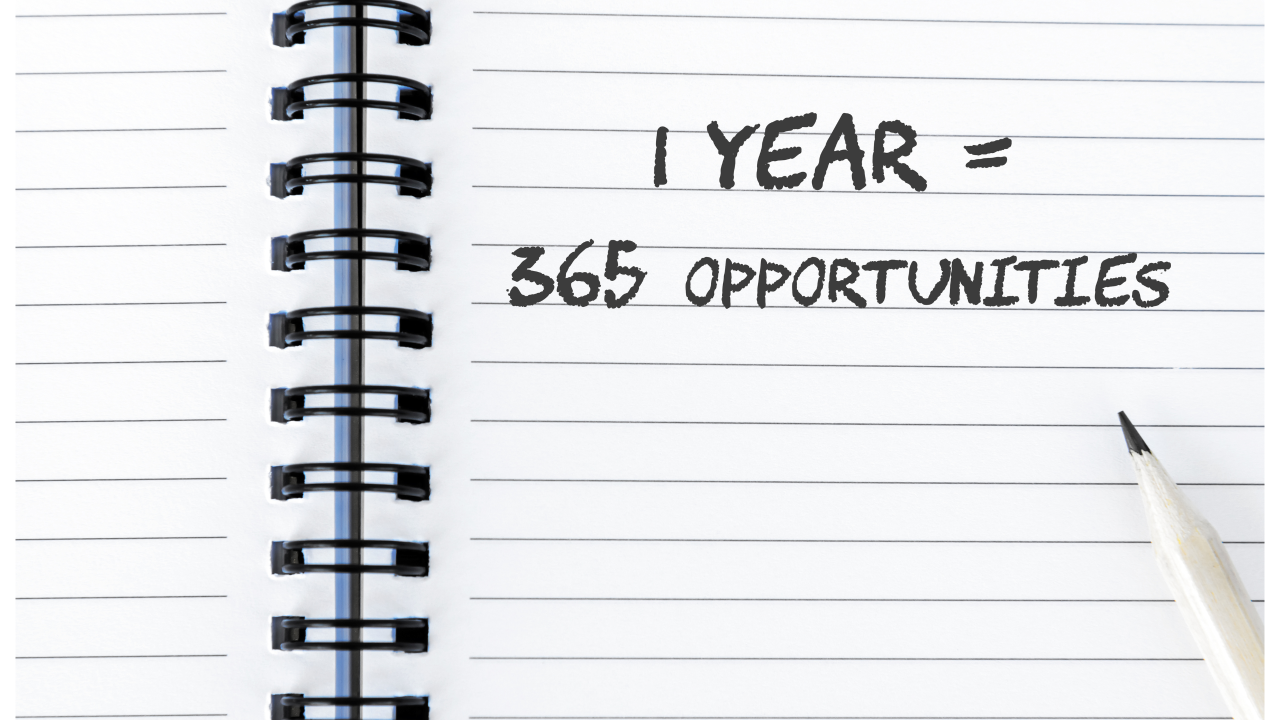 1 YEAR =
365 OPPORTUNITIES